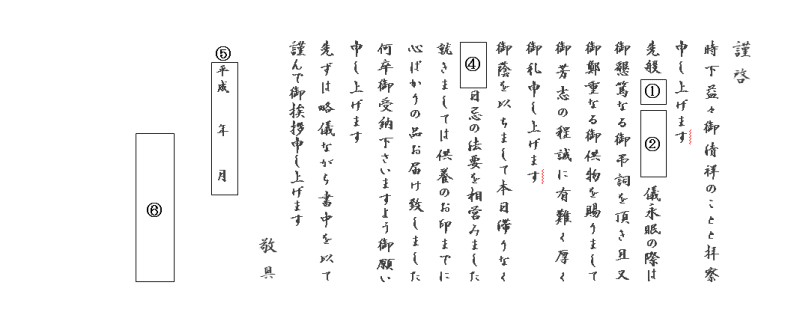 謹啓
時下益々御清祥のことと拝察
申し上げます
先般①②儀永眠の際は
御懇篤なる御弔詞を頂き且又
御鄭重なる御供物を賜りまして
御芳志の程誠に有難く厚く
御礼申し上げます
御蔭を以ちまして本日滞りなく
④日忌の法要を相営みました
就きましては供養のお印までに
心ばかりの品お届け致しました
何卒御受納下さいますよう御願い
申し上げます
先ずは略儀ながら書中を以て
謹んで御挨拶申し上げます
敬具
⑤
平成 年 月
⑥